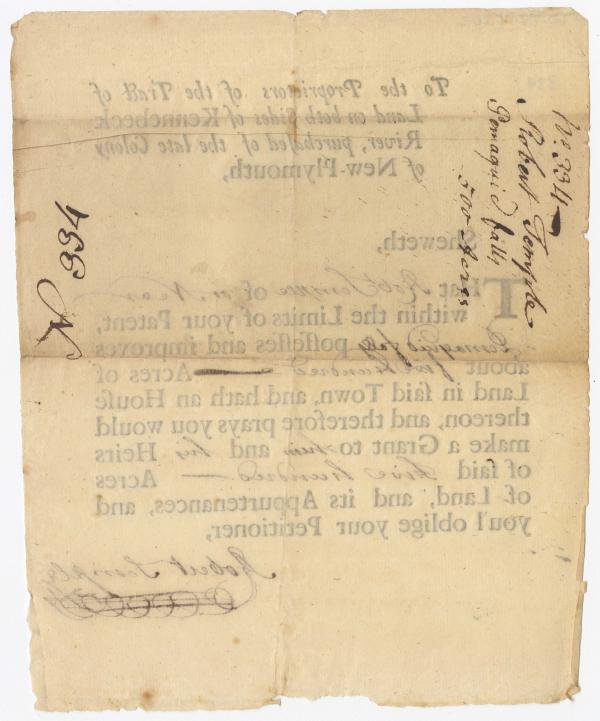 No. 334
Robert Temple
Pemaquid falls
500 Acres
No 334
To the Proprietors of the Tract of
Land on both Sides of Kennebeck
River, purchased of the late Colony
of New-Plymouth,
Sheweth,
That Robt Temple of or Near
within the Limits of your Patent,
Pemaquid falls possesses and improves
about five hundred Acres of
Land in said Town, and hath an House
thereon, and therefore prays you would
make a Grant to him and his Heirs
of said five hundred Acres
of Land, and its Appurtenances, and
you'l oblige your Petitioner,
Robert Temple